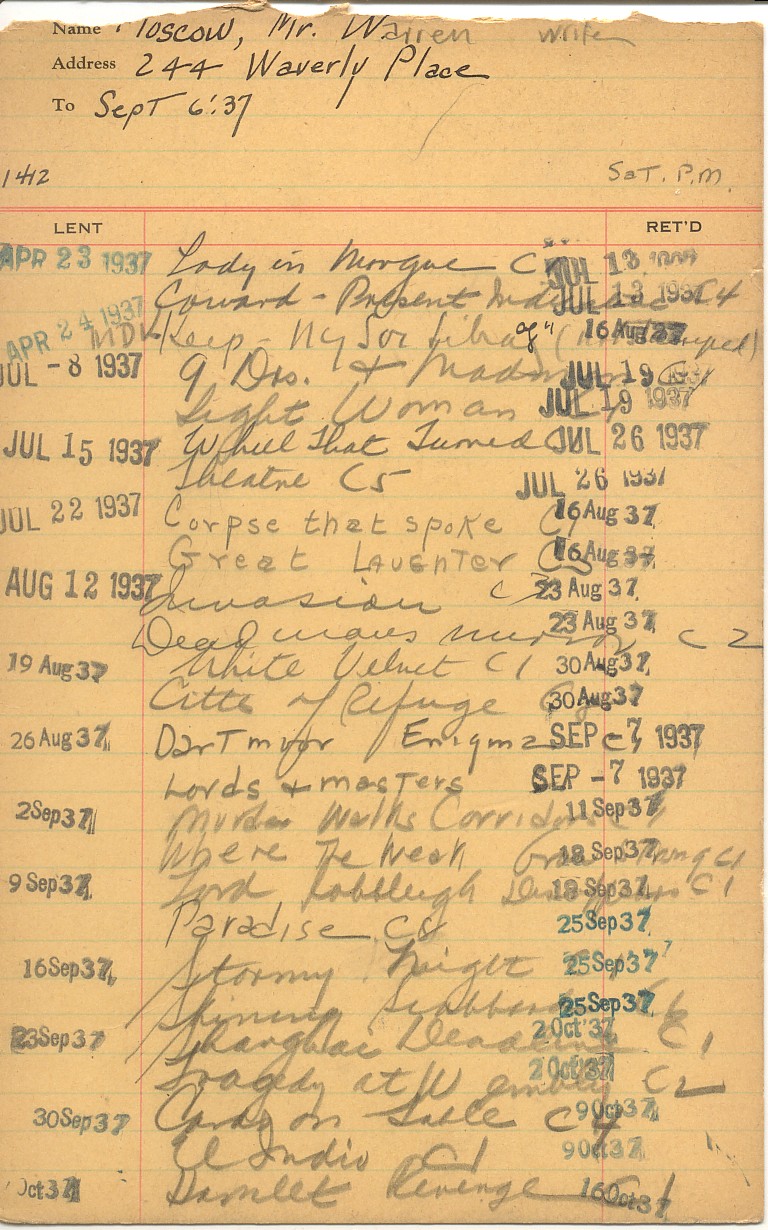 Name Moscow, Mr. Warren
Address 244 Waverly Place
To Sept 6'37
1412 Sat. P.M.
LENT RET'D
APR 23 1937 Lady in Morgue C JUL 13
Coward - Present Indicative C4 JUL 13 1937
APR 24 1937 Keep - NY Soc Library 16 Aug 37
JUL -8 1937 9 Drs. + Madman JUL 19 1937
Light Woman JUL 19 1937
JUL 15 1937 Wheel That Turned JUL 26 1937
Theatre C5 JUL 26 1937
JUL 22 1937 Corpse that spoke C1 16 Aug 37
Great Laughter 16 Aug 37
AUG 12 1937 Invasion C 23 Aug 37
Dead mans mirror C2 23 Aug 37
19 Aug 37 White Velvet C1 30 Aug 37
Citte of Refuge 30 Aug 37
26 Aug 37 Dartmoor Enigma C1 SEP -7 1937
Lords + masters SEP -7 1937
2 Sep 37 Murder Walks Corridors 11 Sep 37
Where the Weak Grow Strong C1 18 Sep 37
9 Sep 37 Lord Cobbleigh Disappears C1 18 Sep 37
Paradise C8 25 Sep 37
16 Sep 37 Stormy Night 25 Sep 37
Shining Scabbard C6 25 Sep 37
23 Sep 37 Shanghai Deadline C1 2 Oct 37
Tragedy at Wembley C2 2 Oct 37
30 Sep 37 Cards on Table C4 9 Oct 37
El Indio C1 9 Oct 37
Oct 37 Hamlet Revenge C1 16 Oct 37